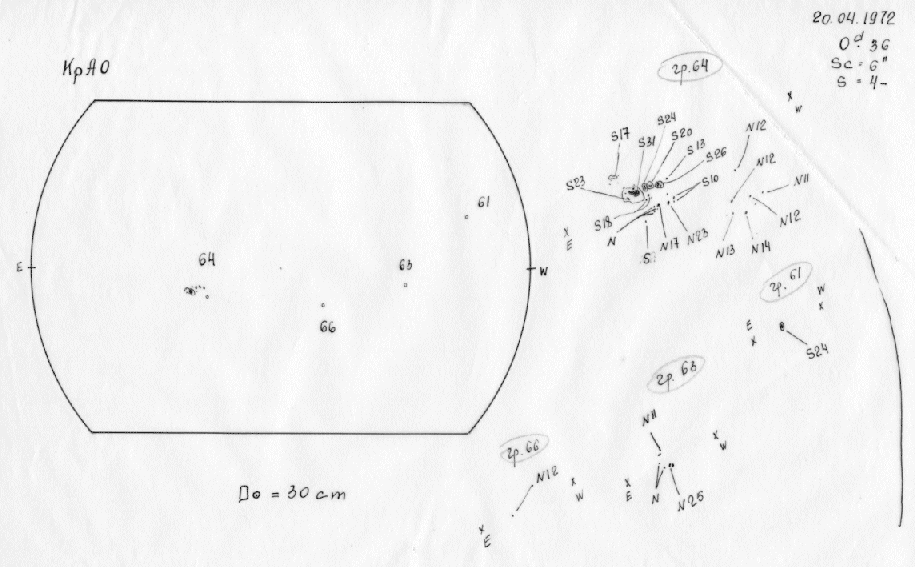 20.04.1972
0ᵈ.36
Sc = 6"
S = 4-
КрАО
гр.64
x
W
S24
S17
S31
S20
S13
S26
N12
N12
S23
S10
N11
S18
N
S
N17
N23
N13
N14
N12
x
E
61
64
63
66
E
W
гр.61
W
x
E
x
S24
гр.63
N11
x
W
x
E
N
N25
гр.66
N12
x
W
x
E
D⊙ = 30 cm